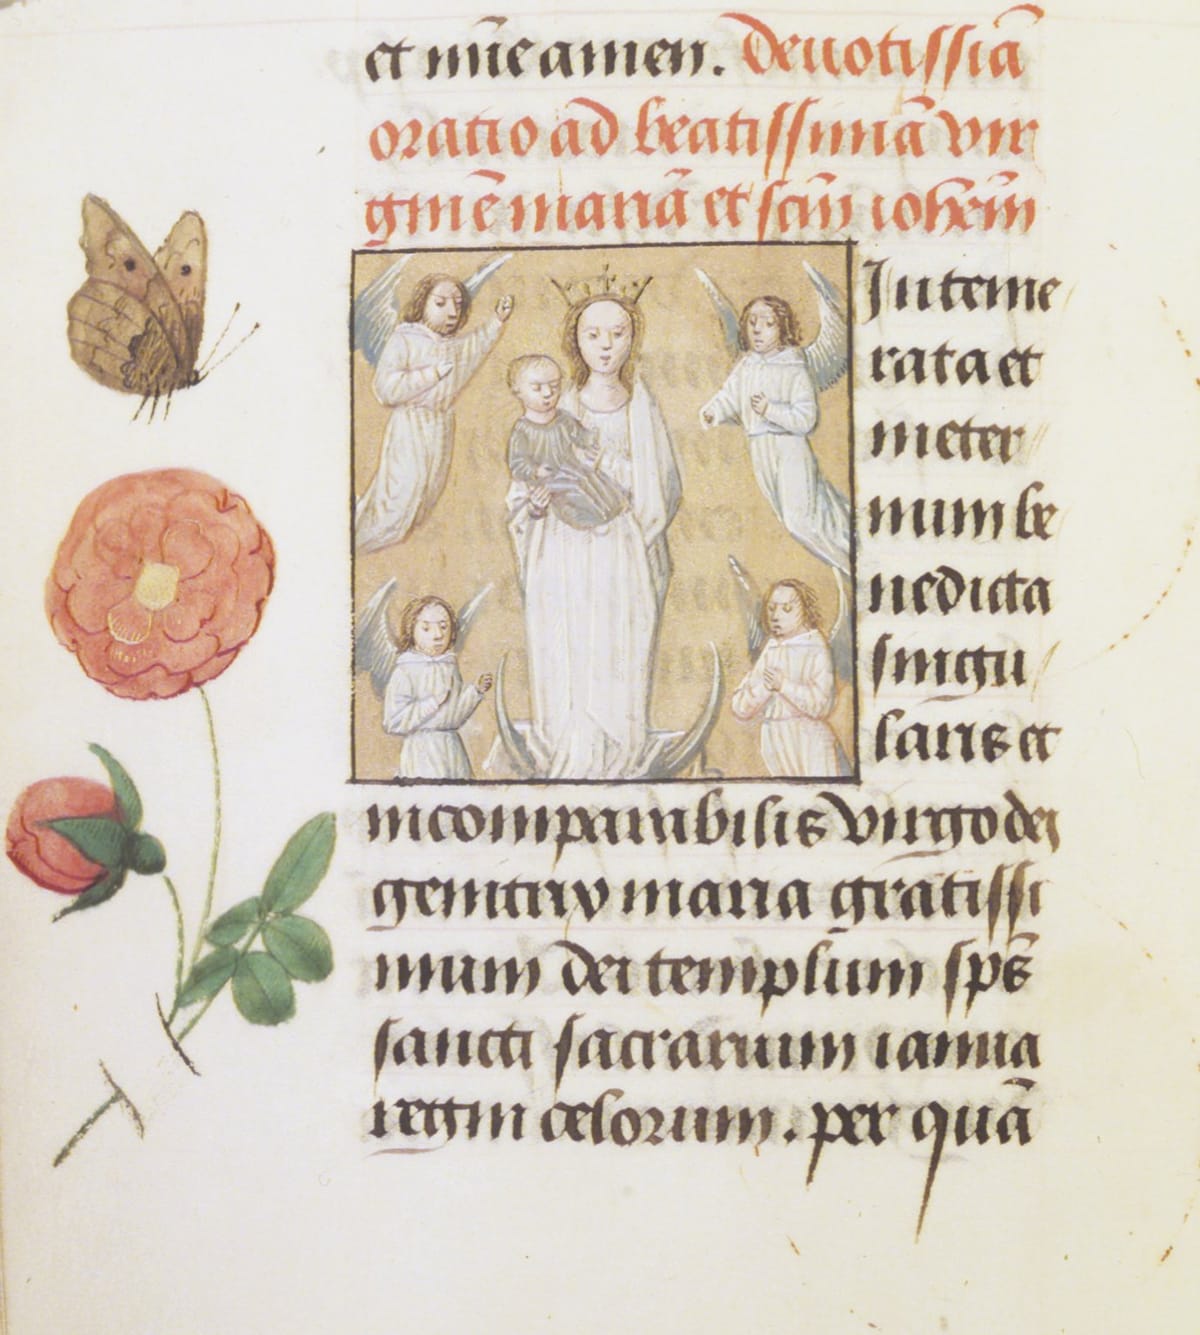 et nūc amen. Deuotissiā
oratio ad beatissimā vir
ginē mariā et scm̄ iohēm
Inteme
rata et
in eter
num be
nedicta
singu
laris et
incomparabilis virgo dei
genitrix maria gratissi
mum dei templum sps̄
sancti sacrarium ianua
regni celorum. per quā